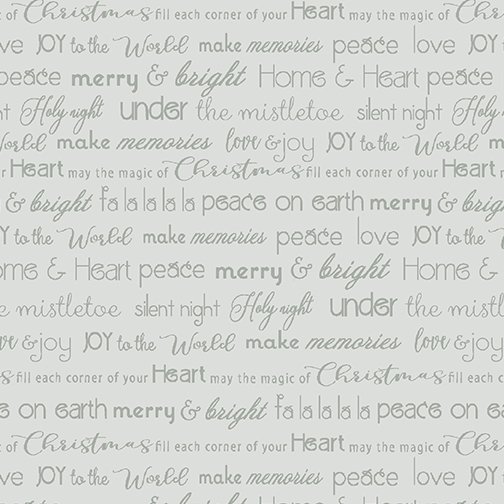 c of Christmas fill each corner of your Heart may the magic of Christmas
ve JOY to the World make memories peace love JOY to
peace merry & bright Home & Heart peace
ht Holy night under the mistletoe silent night Holy
World make memories love & joy JOY to the World m
ur Heart may the magic of Christmas fill each corner of your Heart m
& bright fa la la la la peace on earth merry & brig
Y to the World make memories peace love JOY to the
ome & Heart peace merry & bright Home &
e mistletoe silent night Holy night under the m
ve & joy JOY to the World make memories love & joy
s fill each corner of your Heart may the magic of Christmas fill each co
e on earth merry & bright fa la la la la peace on
c of Christmas fill each corner of your Heart may the magic of Christmas
ve JOY to the World make memories peace love JOY to
peace merry & bright Home & Heart peace